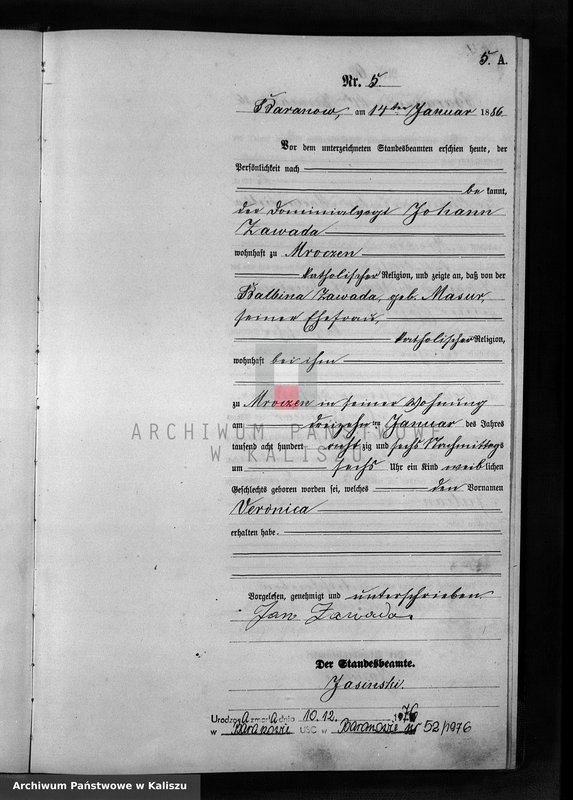 5. A.
Nr. 5.
Baranow, am 14ten Januar 1886
Vor dem unterzeichneten Standesbeamten erschien heute, der
Persönlichkeit nach
be kannt,
der Dominialvogt Johann
Zawada
wohnhaft zu Mroczen
katholischer Religion, und zeigte an, daß von der
Balbina Zawada, geb. Masur,
seiner Ehefrau,
katholischer Religion,
wohnhaft bei ihm
zu Mroczen in seiner Wohnung
am dreizehnten Januar des Jahres
tausend acht hundert acht zig und sechs Nachmittags
um sechs Uhr ein Kind weib lichen
Geschlechts geboren worden sei, welches den Vornamen
Veronica
erhalten habe.
Vorgelesen, genehmigt und unterschrieben
Jan Zawada.
Der Standesbeamte.
Jasinski.
Urodzona zmarła dnia 10.12. 1976
w Baranowie USC w Baranowie nr 52/1976
ARCHIWUM PAŃSTWOWE
W KALISZU
Archiwum Państwowe w Kaliszu